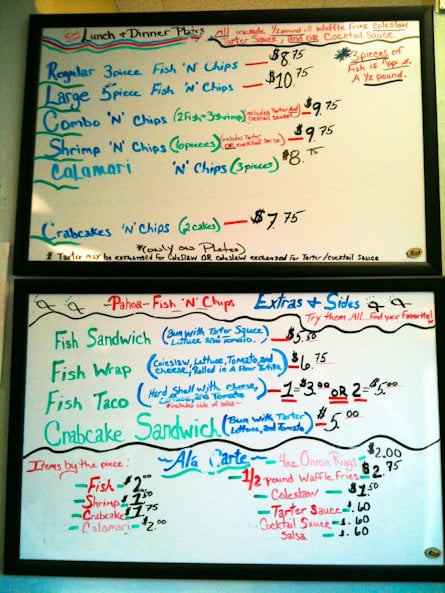 Lunch & Dinner Plates - All include 1/2 pound of Waffle Fries Coleslaw
Tarter Sauce, and OR Cocktail Sauce
Regular 3piece Fish 'N' Chips — $8.75
Large 5piece Fish 'N' Chips — $10.75
*3 pieces of
Fish is Appx.
A 1/2 pound.
Combo 'N' Chips (2Fish+3shrimp) (includes Tarter And cocktail sauces) — $9.75
Shrimp 'N' Chips (6pieces) (includes Tarter OR cocktail sauce) — $9.75
Calamari 'N' Chips (3pieces) $8.75
Crabcakes 'N' Chips (2cakes) — $7.75
*(only on Plates)
* Tarter may be exchanged for Coleslaw OR coleslaw exchanged for Tarter/cocktail Sauce
~ Pahoa~ Fish 'N' Chips Extras & Sides
Try them All...Find your Favorite!
Fish Sandwich (Bun With Tarter Sauce, Lettuce and Tomato.) — $5.50
Fish Wrap (Coleslaw, Lettuce, Tomato, and Cheese, Rolled in A Flour Tortilla) — $6.75
Fish Taco (Hard Shell with cheese, Lettuce, and Tomato) — 1=$3.00 OR 2=$5.00
*includes side of salsa~
Crabcake Sandwich (Bun With Tarter Lettuce, and Tomato) — $5.00
~ Ala Carte ~
Items by the piece:
— Fish — $2.00
— Shrimp — $1.50
— Crabcake — $1.75
— Calamari — $2.00
— 4oz. Onion Rings — $2.00
— 1/2 pound Waffle Fries — $2.75
— Coleslaw — $1.50
— Tarter Sauce — $.60
Cocktail Sauce — $.60
Salsa — $.60